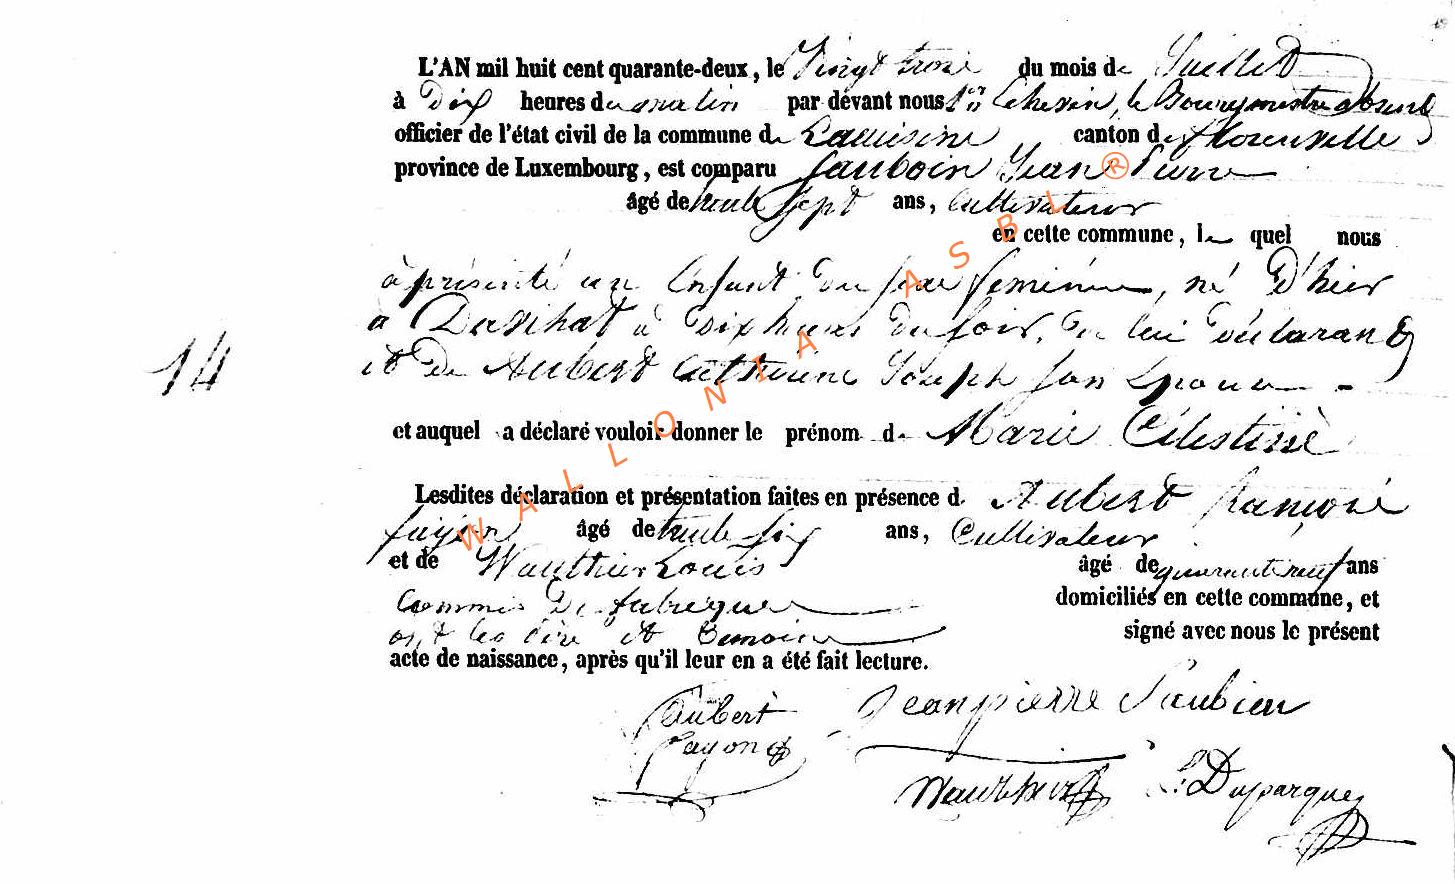 L'AN mil huit cent quarante-deux, le Vingt trois du mois de Juillet
à Dix heures du matin par devant nous 1er Echevin, le Bourgmestre absent
officier de l'état civil de la commune de Lacuisine canton de florenville
province de Luxembourg, est comparu Sauboin Jean Pierre
âgé de trente Sept ans, Cultivateur
en cette commune, le quel nous
à présenté un Enfant du sexe feminin, né D'hier
à à six heures du soir, de lui déclarant
et de Aubert Catherine Joseph son Epouse
14
et auquel a déclaré vouloir donner le prénom de Marie Célestine
Lesdites déclaration et présentation faites en présence d. Aubert françois
fayon âgé de trente six ans, Cultivateur
et de Wauthier Louis âgé de quarante neuf ans
Commis De fabrique domiciliés en cette commune, et
ont les père et temoins signé avec nous le présent
acte de naissance, après qu'il leur en a été fait lecture.
Aubert Jeanpierre Saubien
fayon
Wauthier L. Duparque
WALLONIA ASBL ®